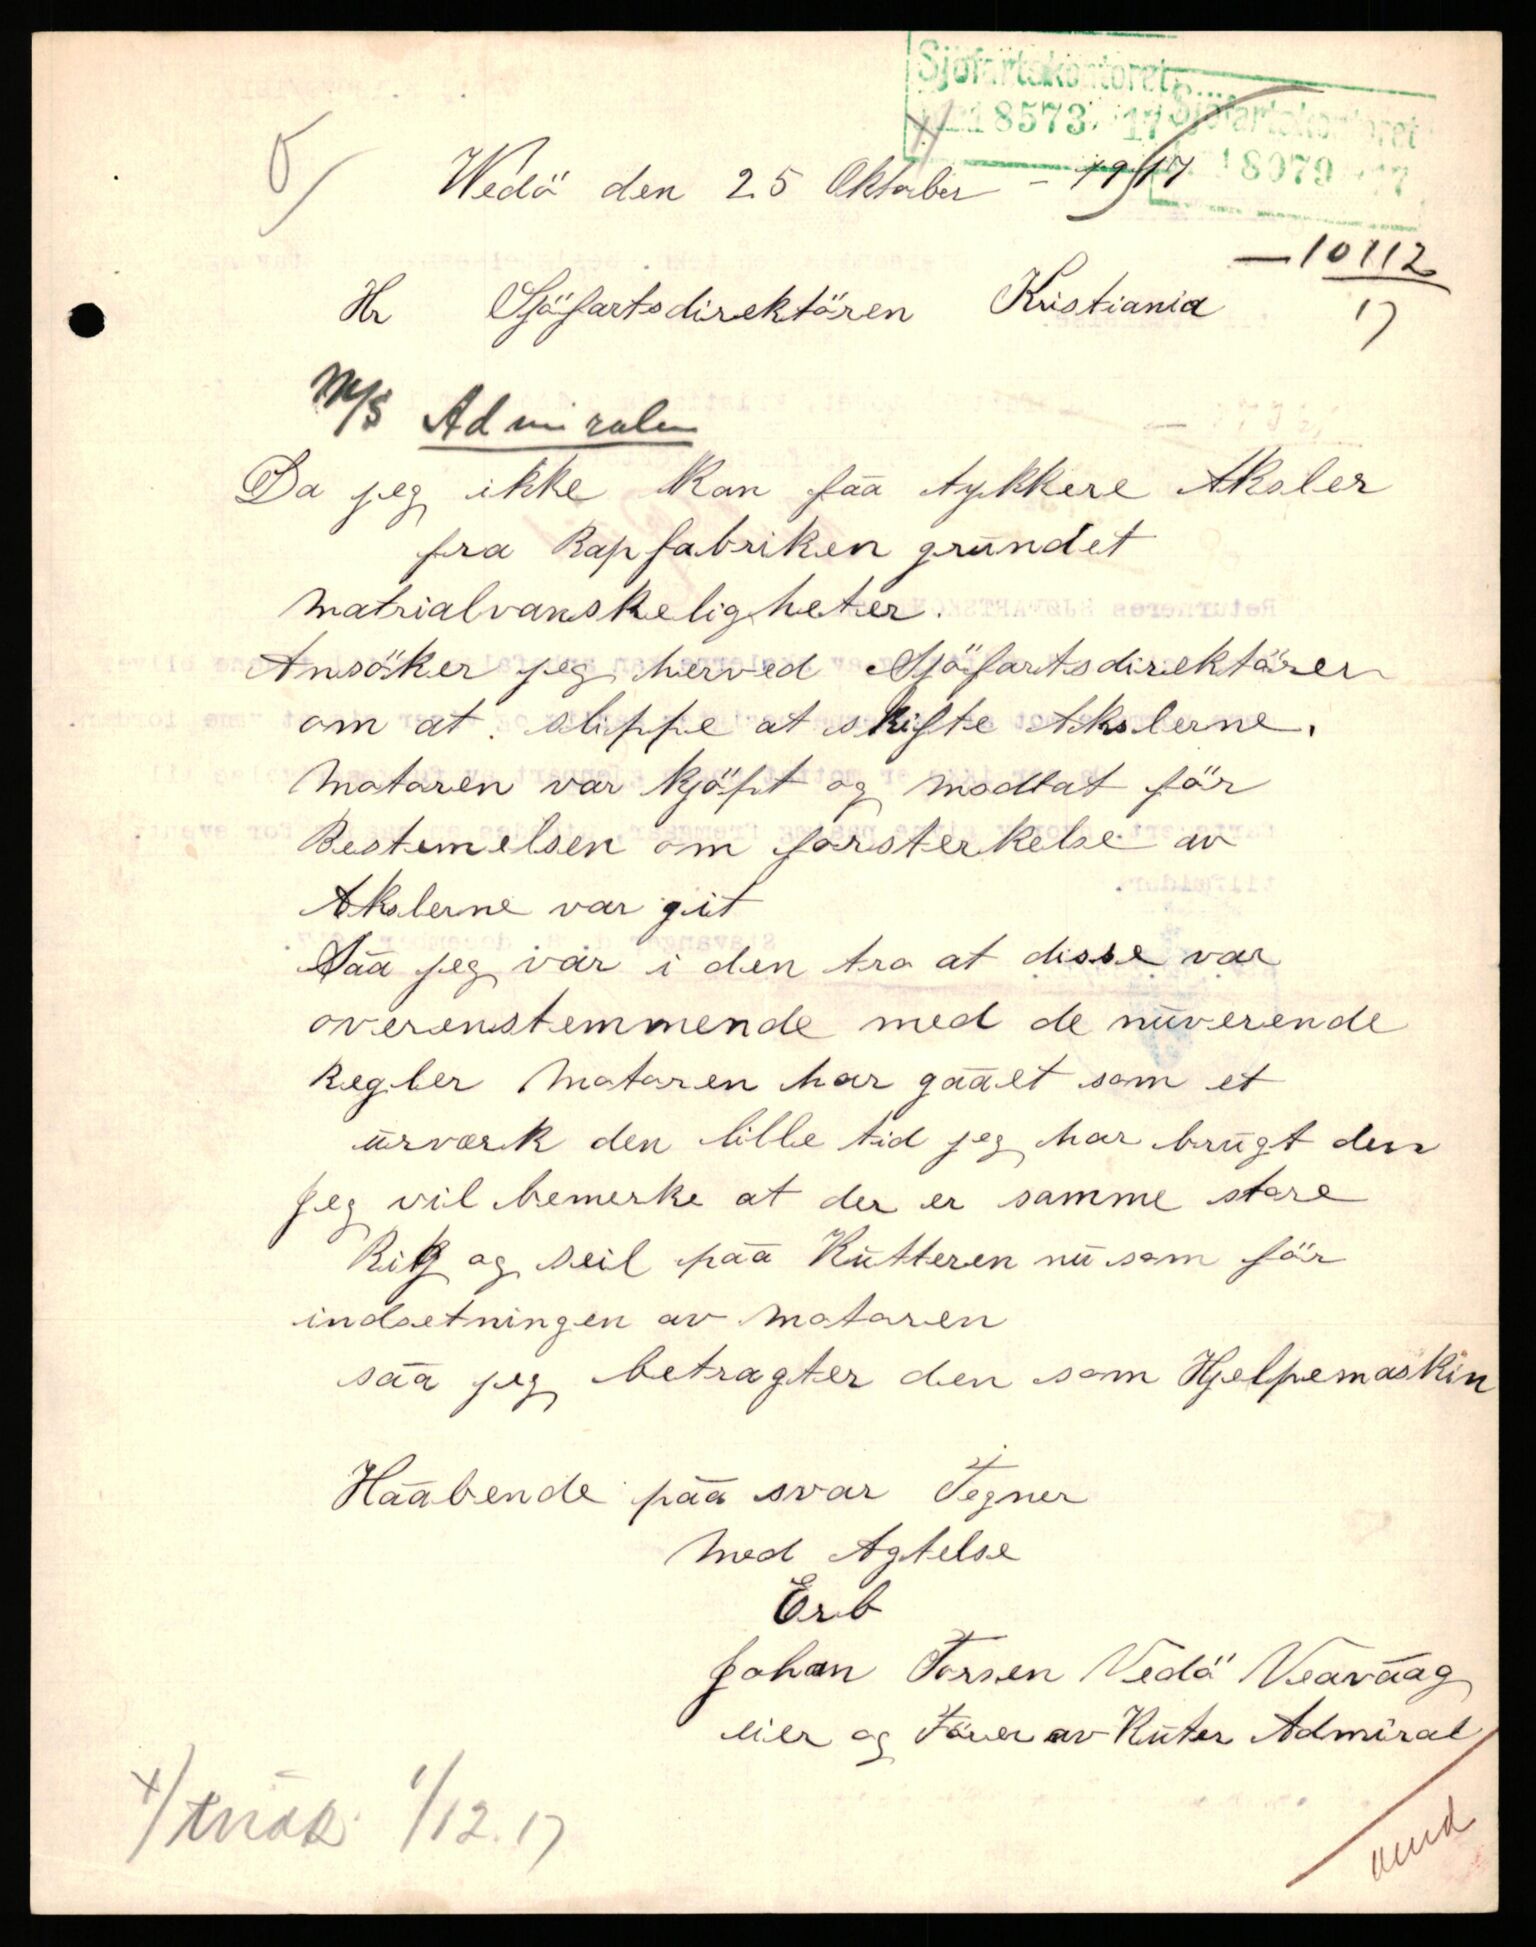 Sjöfartskontoret
18573 17
Sjöfartskontoret
18079 17
Wedö den 25 Oktober - 1917
— 10112
17
Hr Sjöfartsdirektören Kristiania
M/S Admiralen
Da jeg ikke kan fåa tykkere Aksler
fra Rapfabriken grundet
Matrialvanskeligheter.
Ansöker jeg herved Sjöfartsdirektören
om at slippe at skifte Akslerne.
Motoren var kjöpt og modtat för
Bestemelsen om forsterkelse av
Akslerne var git
Såa jeg var i den tro at disse var
overenstemmende med de nuverende
Regler Motoren har gåaet som et
urværk den lille tid jeg har brugt den
Jeg vil bemerke at der er samme store
Rig og seil påa Kutteren nu som för
indsetningen av Motoren
såa jeg betragter den som Hjelpemaskin
Håabende påa svar Tegner
Med Agtelse
Erb
Johan Forsen Vedö Veavåag
eier og Förer av Kuter Admiral
1/12.17